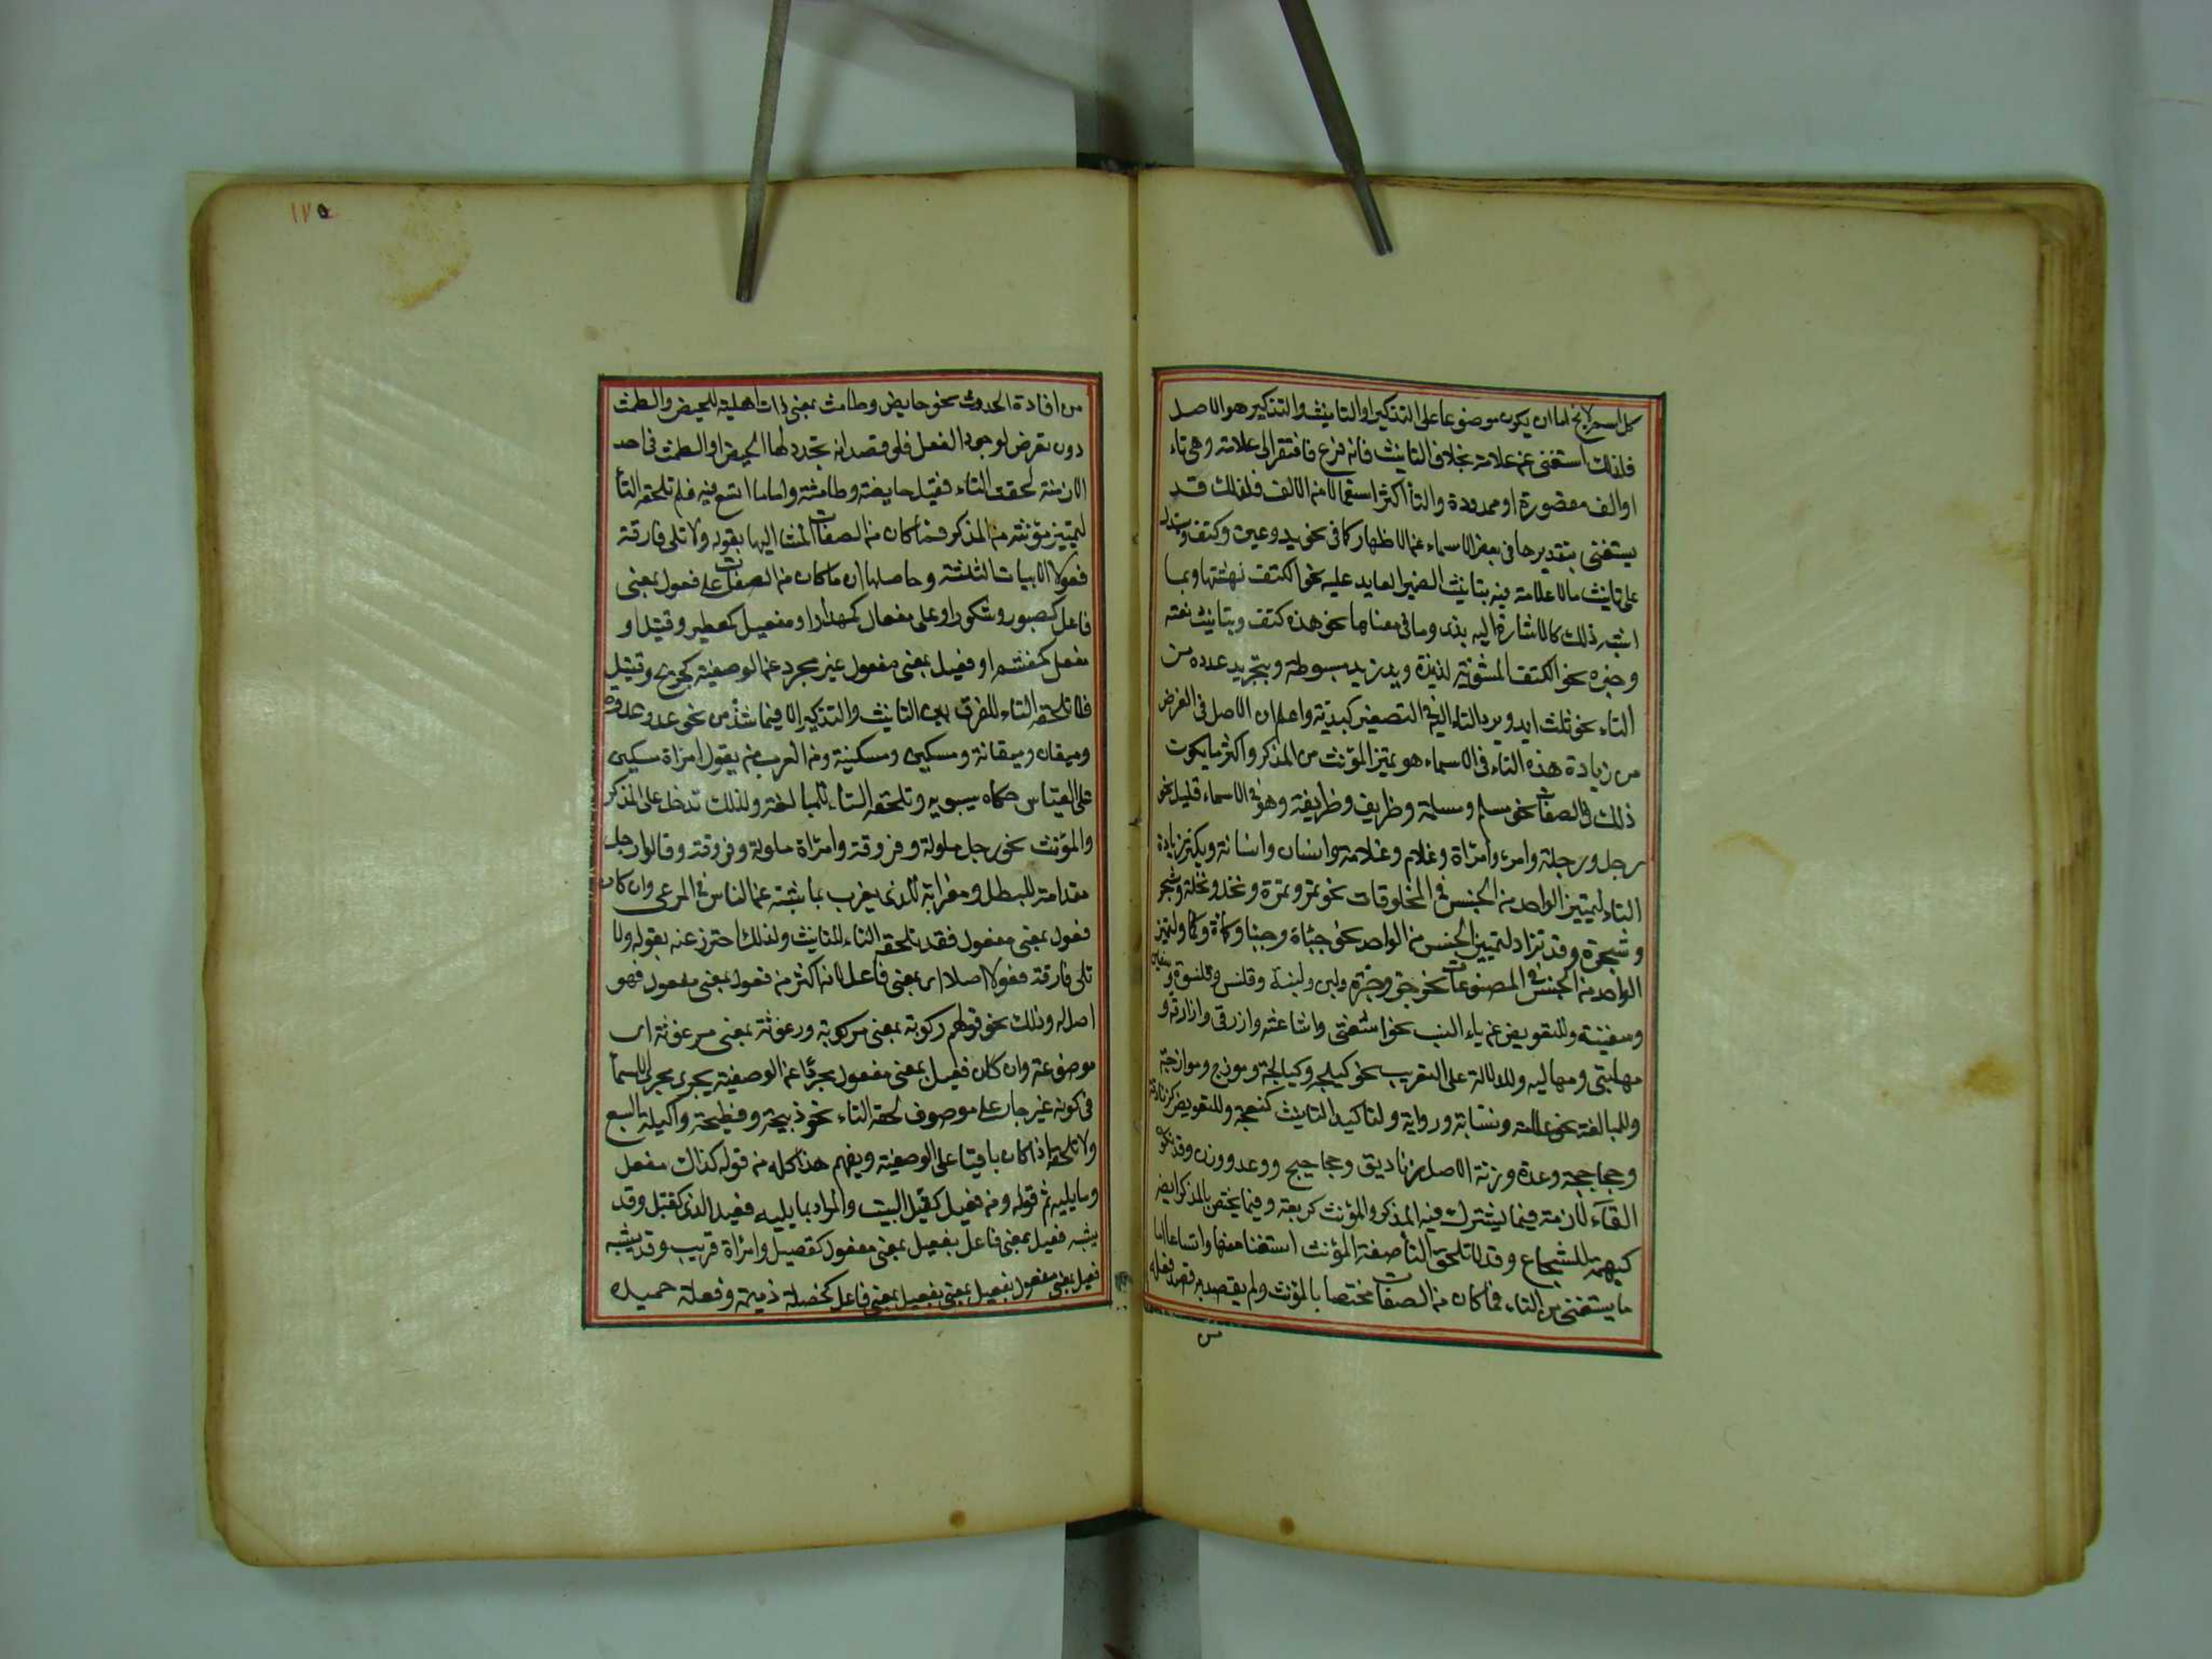 كل اسم لا يخ اما ان يكون موضوعا على التذكير او التانيث والتذكير هو الاصل
فلذلك استغنى عن علامة بخلاف التانيث فانه فرع فافتقر الى علامة وهى تاء
او الف مقصورة او ممدودة والتاء اكثر استعمالا من الالف فلذلك قد
يستغنى بتقديرها فى بعض الاسماء عن الاظهار كما فى نحو يد وعين وكتف ويستدل
على تانيث ما لا علامة فيه بتانيث الضمير العايد عليه نحو الكتف نهشتها وبما
اشبه ذلك كالاشارة اليه بذى وما فى معناها نحو هذه كتف وبتانيث نعته
وخبره نحو الكتف المشوية لذيذة ويد زيد مبسوطة وبتجريد عدده من
التاء نحو ثلث ايد وبرد التاء اليه فى التصغير كيدية واعلم ان الاصل فى الغرض
من زيادة هذه التاء فى الاسماء هو تميز المؤنث من المذكر واكثر ما يكون
ذلك فى الصفات نحو مسلم ومسلمة وظريف وظريفة وهو فى الاسماء قليل نحو
رجل ورجلة وامرء وامراة وغلام وغلامة وانسان وانسانة ويكثر زيادة
التاء لتمييز الواحد من الجنس فى المخلوقات نحو تمر وتمرة ونخل ونخلة وشجر
وشجرة وقد تزاد لتمييز الجنس من الواحد نحو جباة وجبا وكماة وكما ولتميز
الواحد من الجنس فى المصنوعات نحو جر وجرة ولبن ولبنة وقلنس وقلنسوة وسفين
وسفينة وللتعويض عن ياء النسب نحو اشعثى واشاعثة وازرقى وازارقة و
مهلبى ومهالبة وللدلالة على التعريب نحو كيلجة وكيالجة وموزج وموازجة
وللمبالغة نحو علامة ونسابة ورواية ولتاكيد التانيث كنعجة وللتعويض كزنادقة
وجحاجحة وعدة وزنة الاصل زناديق وجحاجيح ووعد ووزن وقد تكون
التاء لازمة فيما يشترك فيه المذكر والمؤنث كربعة وفيما يختص بالمذكر ايضا
كبهمة للشجاع وقد لا تلحق التاء صفة المؤنث استغناء عنها واتساعا اما
ما يستغنى عن التاء فما كان من الصفات مختصا بالمؤنث ولم يقصد به قصد فعله
من
١٧٥
من افادة الحدوث نحو حايض وطامث بمعنى ذات اهلية للحيض والطمث
دون تعرض لوجود الفعل فلو قصد انه تجدد لها الحيض او الطمث فى احد
الازمنة لحقت التاء فقيل حايضة وطامثة واما ما اتسع فيه فلم تلحقه التاء
لتمييز مؤنثه من المذكر فما كان من الصفات المشار اليها بقوله ولا تلى فارقة
فعولا الابيات الثلثة وحاصلها ان ما كان من الصفات على فعول بمعنى
فاعل كصبور وشكور او على مفعال كمهذار او مفعيل كمعطير وقيل او
مفعل كمغشم او فعيل بمعنى مفعول غير مجرد عن الوصفية كجريح وقتيل
فلا تلحقه التاء للفرق بين التانيث والتذكير الا فيما شذ من نحو عدو وعدوة
وميقان وميقانة ومسكين ومسكينة ومن العرب من يقول امراة مسكين
على القياس حكاه سيبويه وتلحقه التاء للمبالغة ولذلك تدخل على المذكر
والمؤنث نحو رجل ملولة وفروقة وامراة ملولة وفروقة وقالوا رجل
مقدامة للبطل ومعزابة للذى يعزب بماشيته عن الناس فى المرعى وان كان
فعول بمعنى مفعول فقد تلحقه التاء للتانيث ولذلك احترز عنه بقوله ولا
تلى فارقة فعولا اصلا اى بمعنى فاعل لانه اكثر من فعول بمعنى مفعول فهو
اصل له وذلك نحو قولهم ركوبة بمعنى مركوبة ورغوثة بمعنى مرغوثة اى
موضوعة وان كان فعيل بمعنى مفعول مجردا عن الوصفية يجرى مجرى الاسماء
فى كونه غير جار على موصوف لحقه التاء نحو ذبيحة ونطيحة واكيلة السبع
ولا تلحقه اذا كان باقيا على الوصفية ويفهم هذا كله من قوله كذاك مفعل
وما يليه ثم قوله ومن فعيل كقتيل البيت والمراد بما يليه فعيل الذى كقتيل وقد
يشبه فعيل بمعنى فاعل بفعيل بمعنى مفعول كقصيل وامراة قريب وقد يشبه
فعيل بمعنى مفعول بفعيل بمعنى بفعيل بمعنى فاعل كخصلة ذميمة وفعلة حميدة